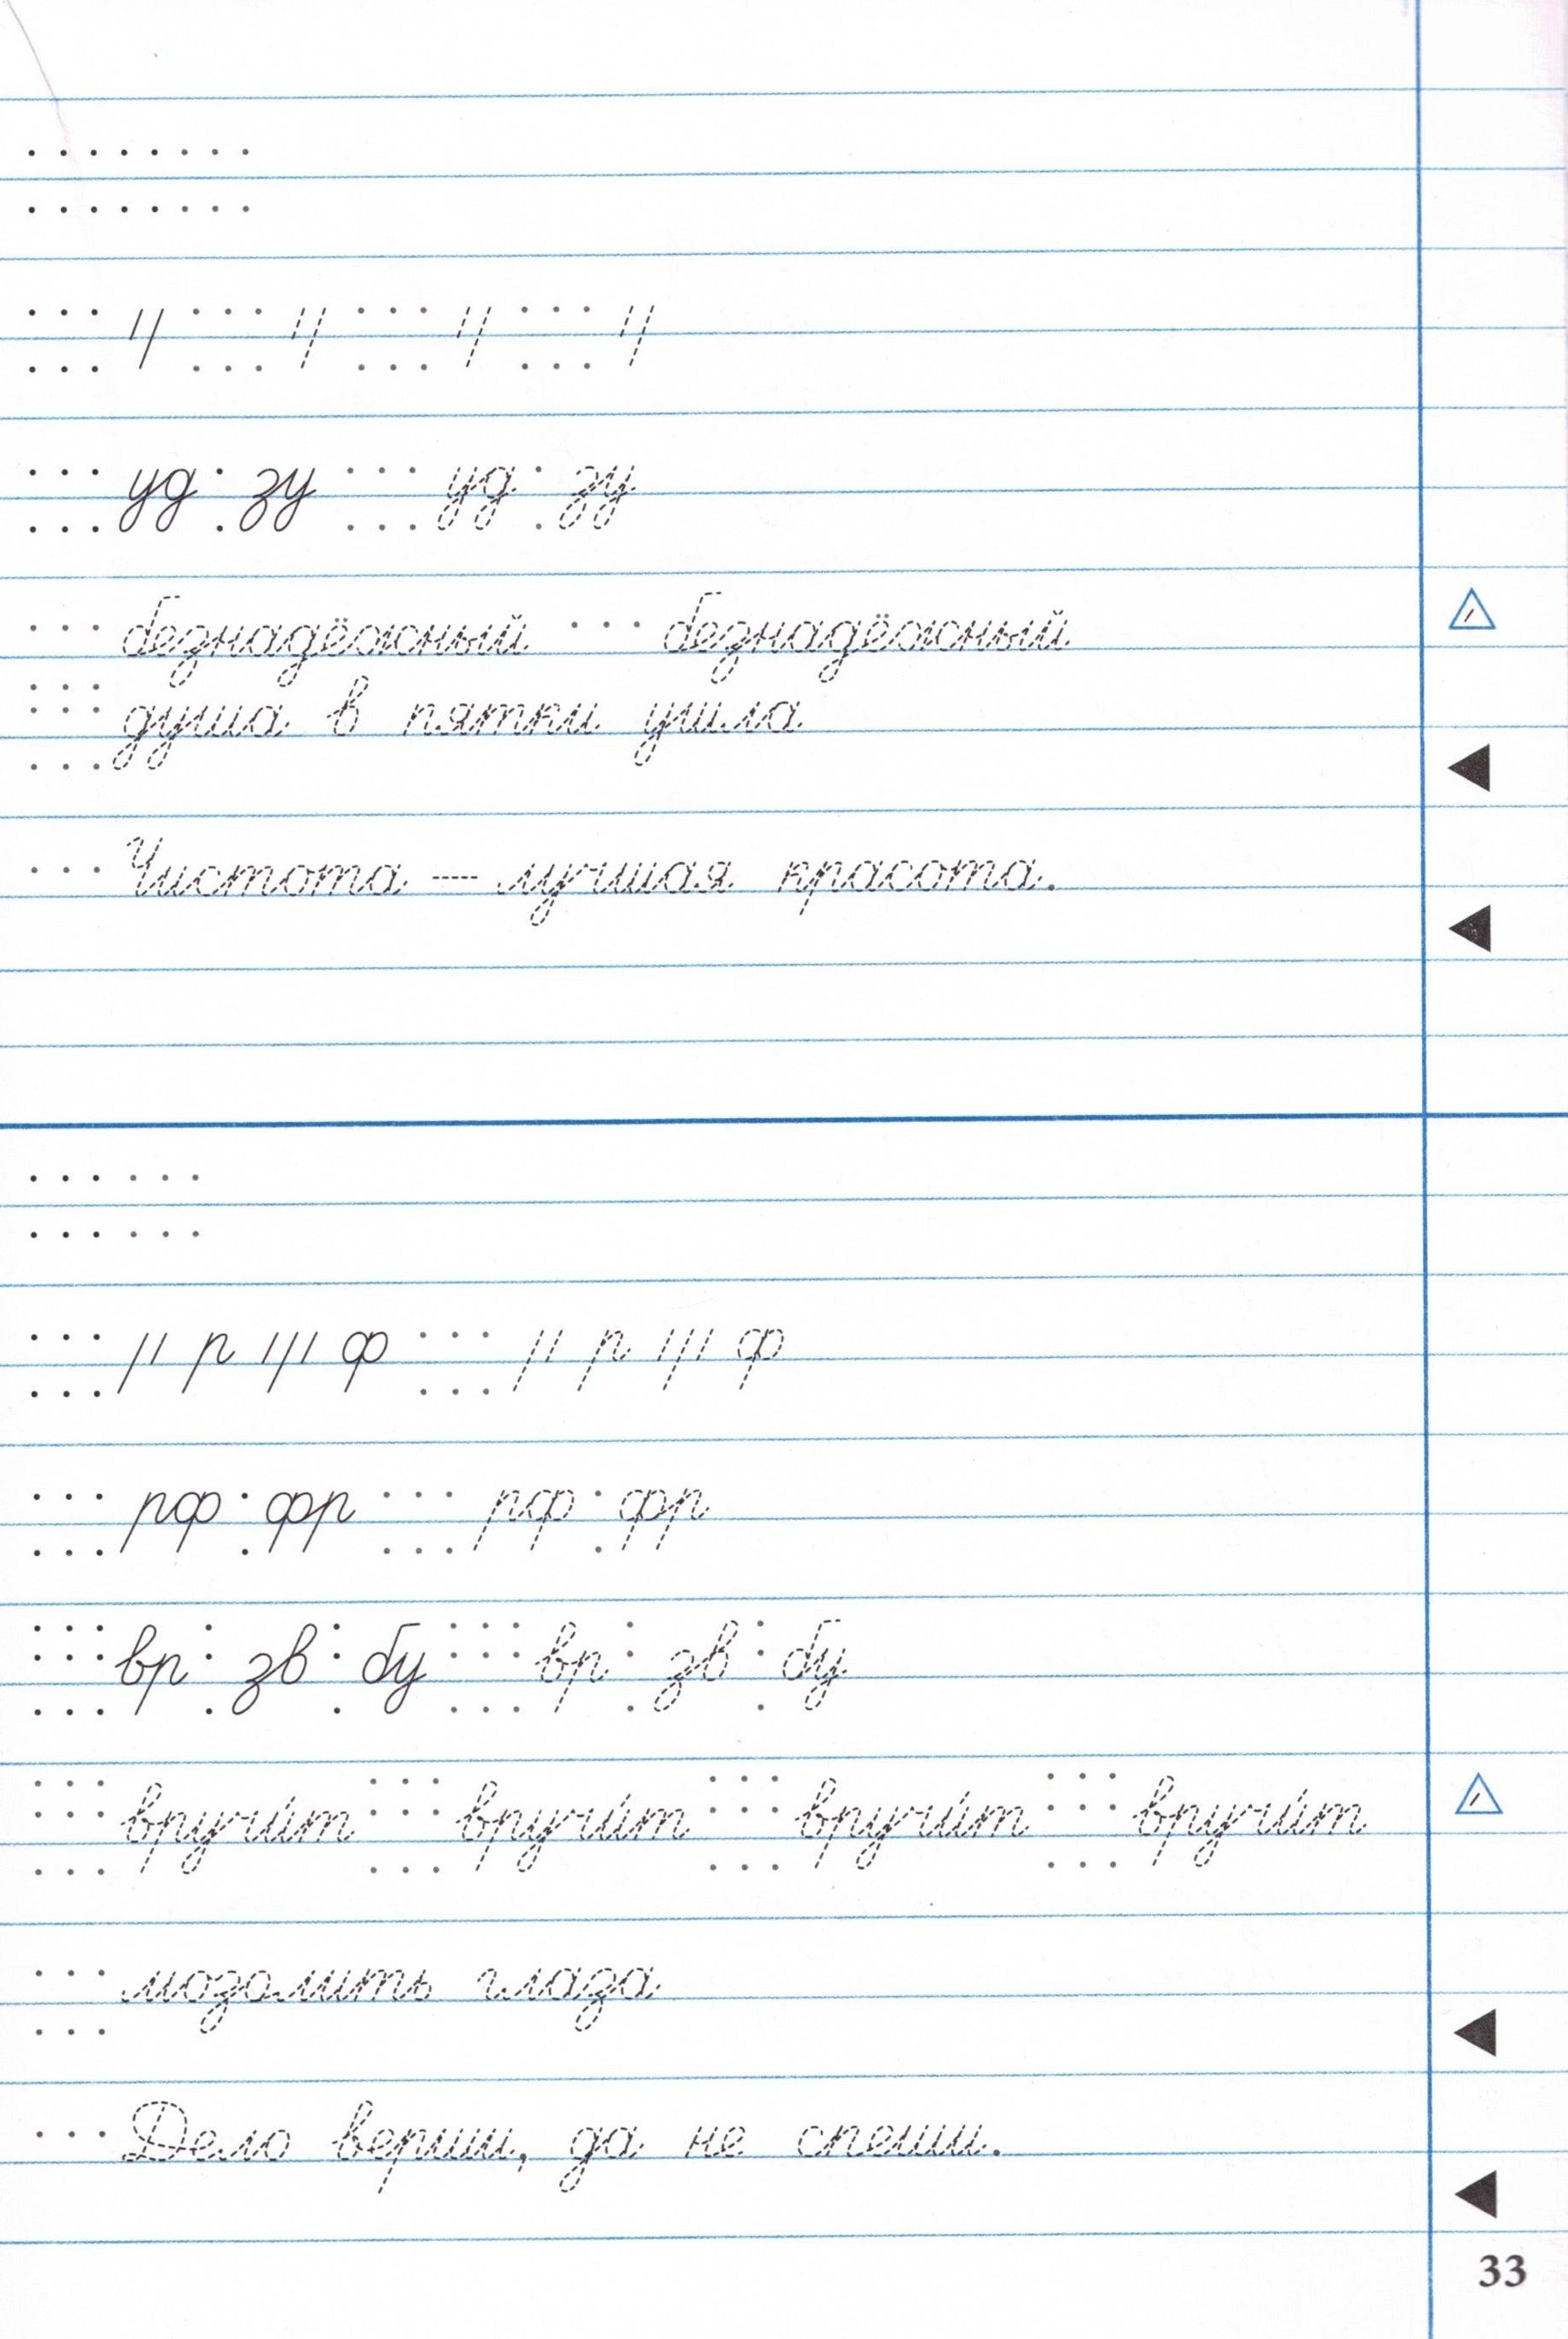 уд зу уд зу
безнадёжный безнадёжный
душа в пятки ушла
Чистота — лучшая красота.
р ф р ф
рф фр рф фр
вр зв бу вр зв бу
вручи́т вручи́т вручи́т вручи́т
мозолить глаза
Дело верши, да не спеши.
33